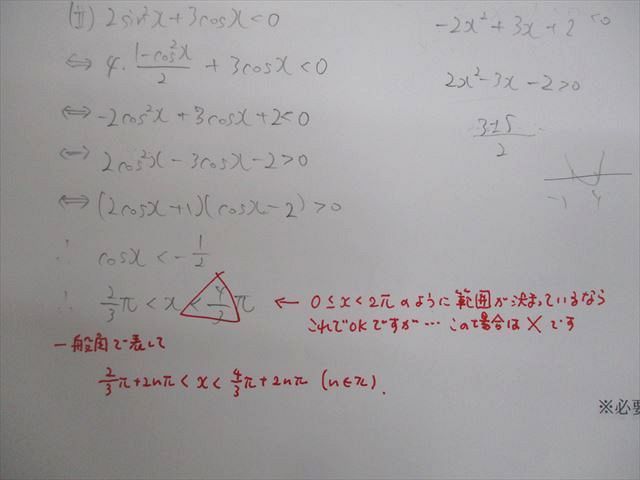 (iii) 2sin²x+3cosx<0
⇔ 4・(1-cos²x)/2 + 3cosx<0
⇔ -2cos²x+3cosx+2<0
⇔ 2cos²x-3cosx-2>0
⇔ (2cosx+1)(cosx-2)>0
∴ cosx<-1/2
∴ 2/3π<x<4/3π
← 0≤x<2πのように範囲が決まっているなら
これでOKですが… この場合は×です
一般角で表して
2/3π+2nπ<x<4/3π+2nπ (n∈π).
-2x²+3x+2<0
2x²-3x-2>0
3±5/2
-1 4
※必要